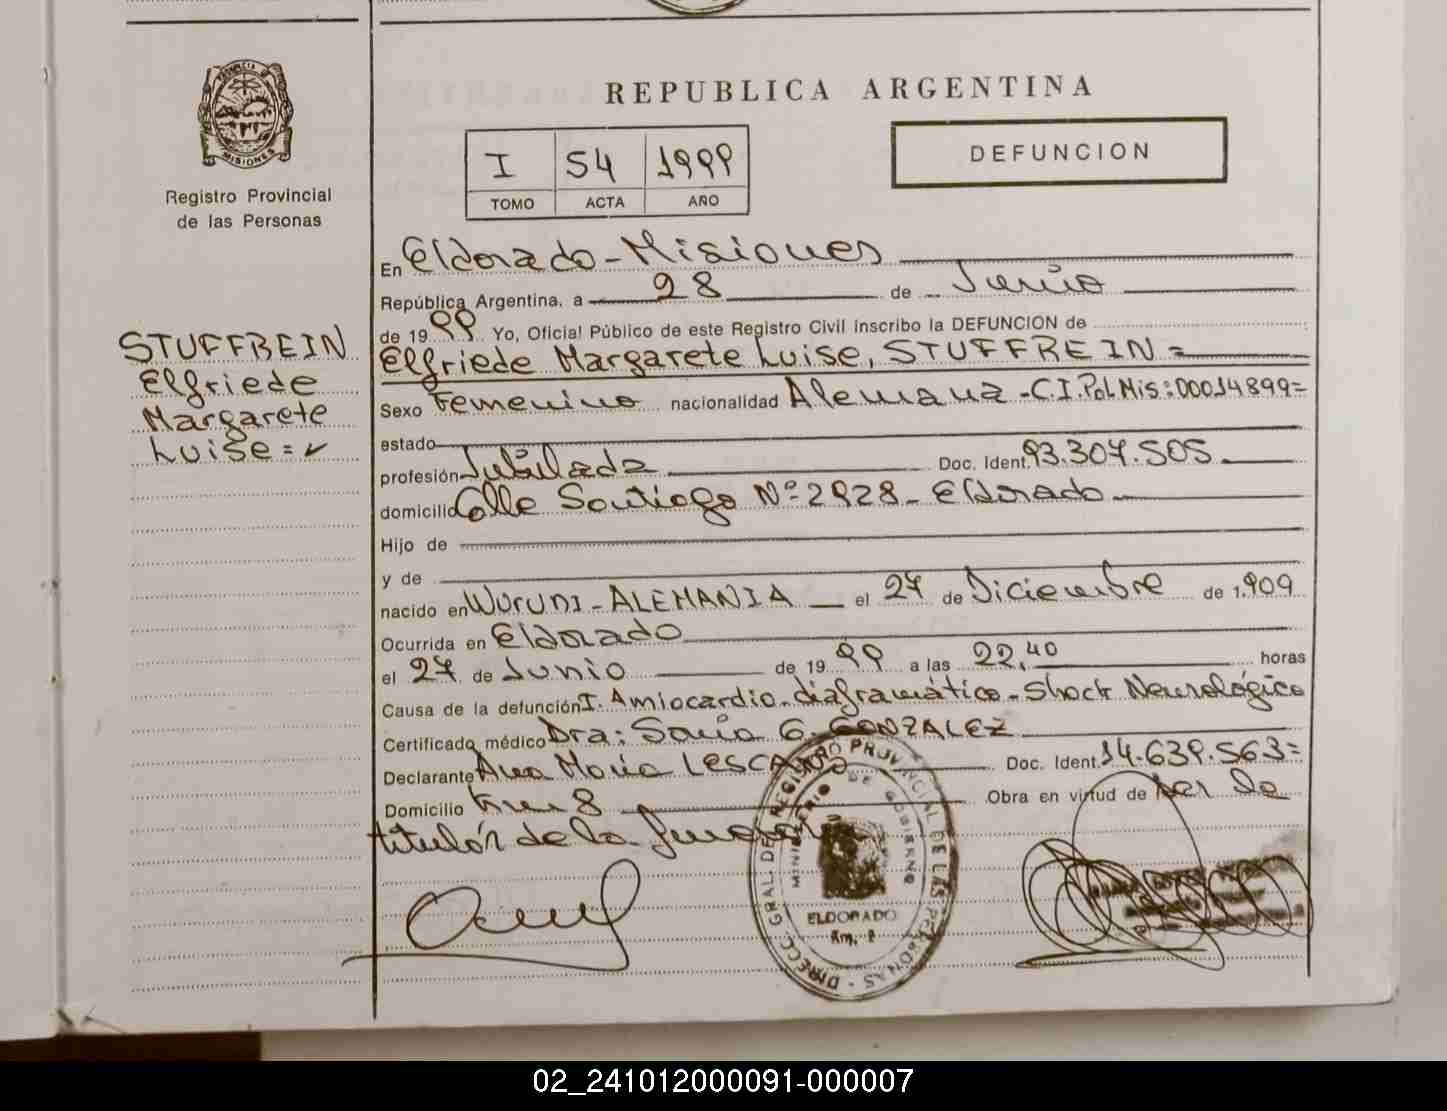 PROVINCIA DE
MISIONES
Registro Provincial
de las Personas
REPUBLICA ARGENTINA
I 54 1999
TOMO ACTA AÑO
DEFUNCION
En Eldorado - Misiones
República Argentina, a 28 de Junio
de 1999 Yo, Oficial Público de este Registro Civil inscribo la DEFUNCION de
Elfriede Margarete Luise, STUFFREIN =
Sexo Femenino nacionalidad Alemana - C.I. Pol. Mis: 00014899=
estado
profesión Jubilada Doc. Ident. 93.307.505
domicilio Calle Santiago Nº 2928 - Eldorado
Hijo de
y de
nacido en WURUDI - ALEMANIA el 27 de Diciembre de 1.909
Ocurrida en Eldorado
el 27 de Junio de 1999 a las 22,40 horas
Causa de la defunción I. Amiocardio - diaframático - Shock Neurológico
Certificado médico Dra: Sonia G. GONZALEZ
Declarante Ana María LESCANO Doc. Ident. 14.639.563=
Domicilio Km 8 Obra en virtud de ser la
titular de la funeraria
STUFFREIN
Elfriede
Margarete
Luise =
DIRECC. GRAL. DE REGISTRO PROVINCIAL DE LAS PERSONAS
MINISTERIO DE GOBIERNO
ELDORADO
Km. 9
02_241012000091-000007